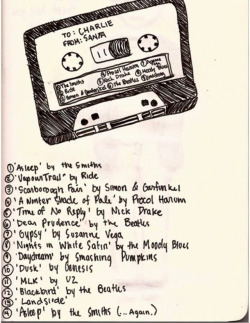 TO: CHARLIE
FROM: SANTA
① The Smiths
② Ride
④ Procol Harum
⑤ Nick Drake
⑥ The Beatles
① 'Asleep' by the Smiths
② 'Vapour Trail' by Ride
③ 'Scarborough Fair' by Simon & Garfunkel
④ 'A Winter Shade of Pale' by Procol Harum
⑤ 'Time of No Reply' by Nick Drake
⑥ 'Dear Prudence' by the Beatles
⑦ 'Gypsy' by Suzanne Vega
⑧ 'Nights in White Satin' by the Moody Blues
⑨ 'Daydream' by Smashing Pumpkins
⑩ 'Dusk' by Genesis
⑪ 'MLK' by U2
⑫ 'Blackbird' by the Beatles
⑬ 'Landslide'
⑭ 'Asleep' by the Smiths (... Again.)